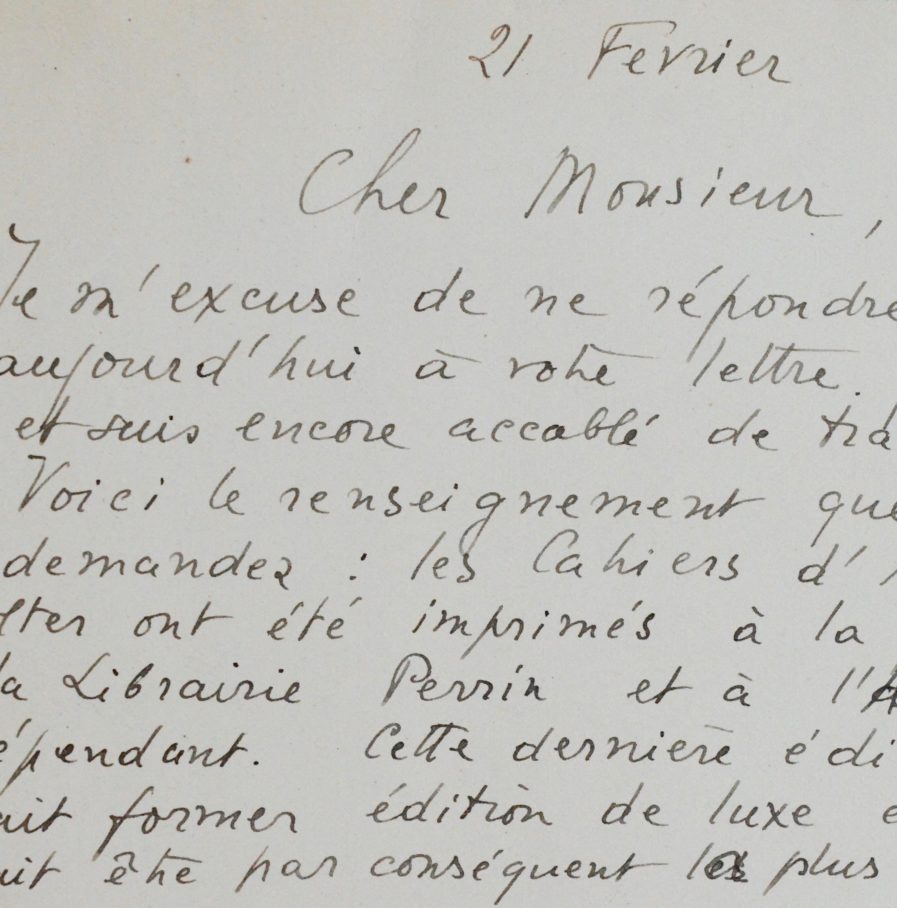 21 Fevrier
Cher Monsieur,
Je m'excuse de ne répondre
aujourd'hui à votre lettre.
et suis encore accablé de tra
Voici le renseignement que
demandez : les Cahiers d'
lter ont été imprimés à la
la Librairie Perrin et à l'
épendant. Cette dernière édi
ait former édition de luxe e
ait être par conséquent les plus